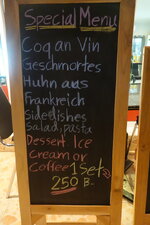 Special Menu
Coq an Vin
Geschmortes
Huhn aus
Frankreich
Sidedishes
Salad, pasta
Dessert Ice
Cream or
Coffee 1 Set
250 B.-